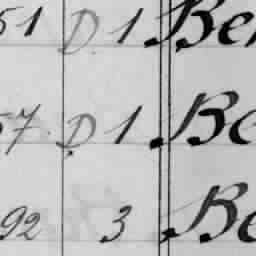 51 D. 1 Be
57. D. 1 Be
92 3 Be